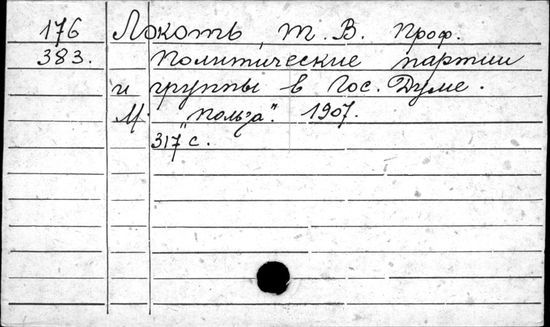 176 Локоть, Т. В. Проф.
383. Политические партии
и группы в Гос. Думе.
М. "Польза". 1907.
317 с.